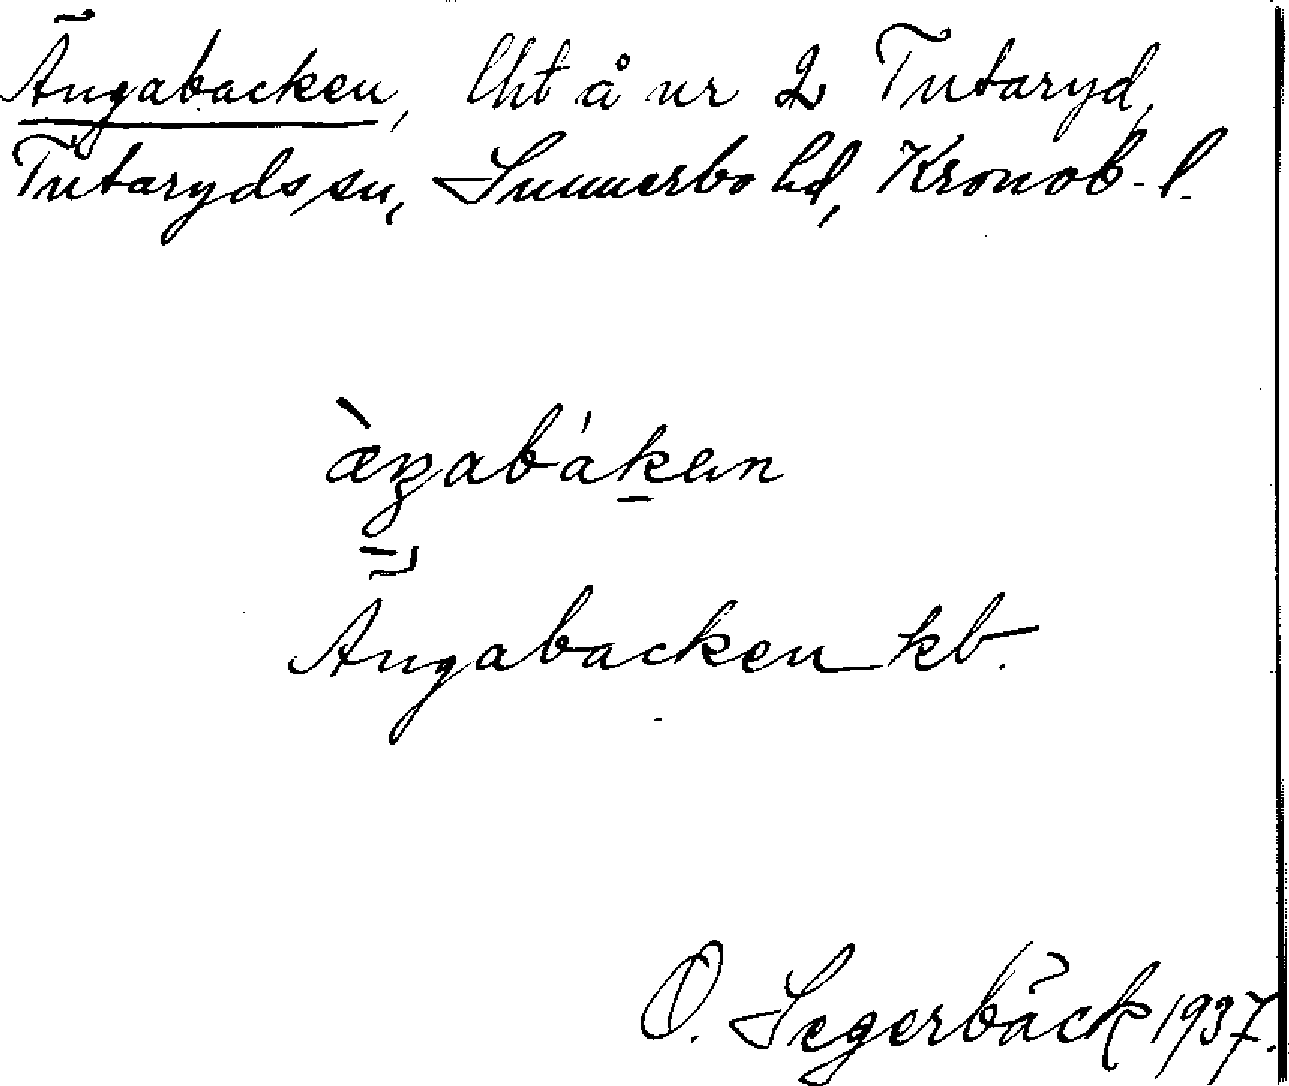 Ängabacken, lht å nr 2 Tutaryd,
Tutaryds sn, Sunnerbo hd, Kronob. l.
æ̀ŋabák̠en
Ängabacken kb.
O. Segerbäck 1937.